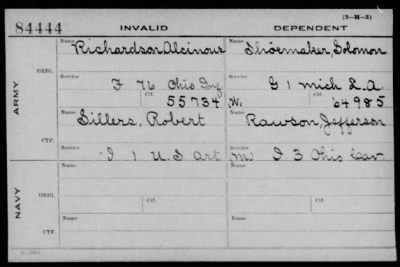 (3-M-3)
84444 INVALID DEPENDENT
Name Richardson Alcinous Name Shoemaker, Solomon
ORIG.
Service F 76 Ohio Inf Service G 1 Mich L.A
Ctf. 55734 W. Ctf. 64985
ARMY
Name Sillers, Robert Name Rawson, Jefferson
CTF.
Service I 1 U.S art Service M I 3 Ohio Cav
Name Name
NAVY
ORIG. Ctf. Ctf.
Name Name
CTF.